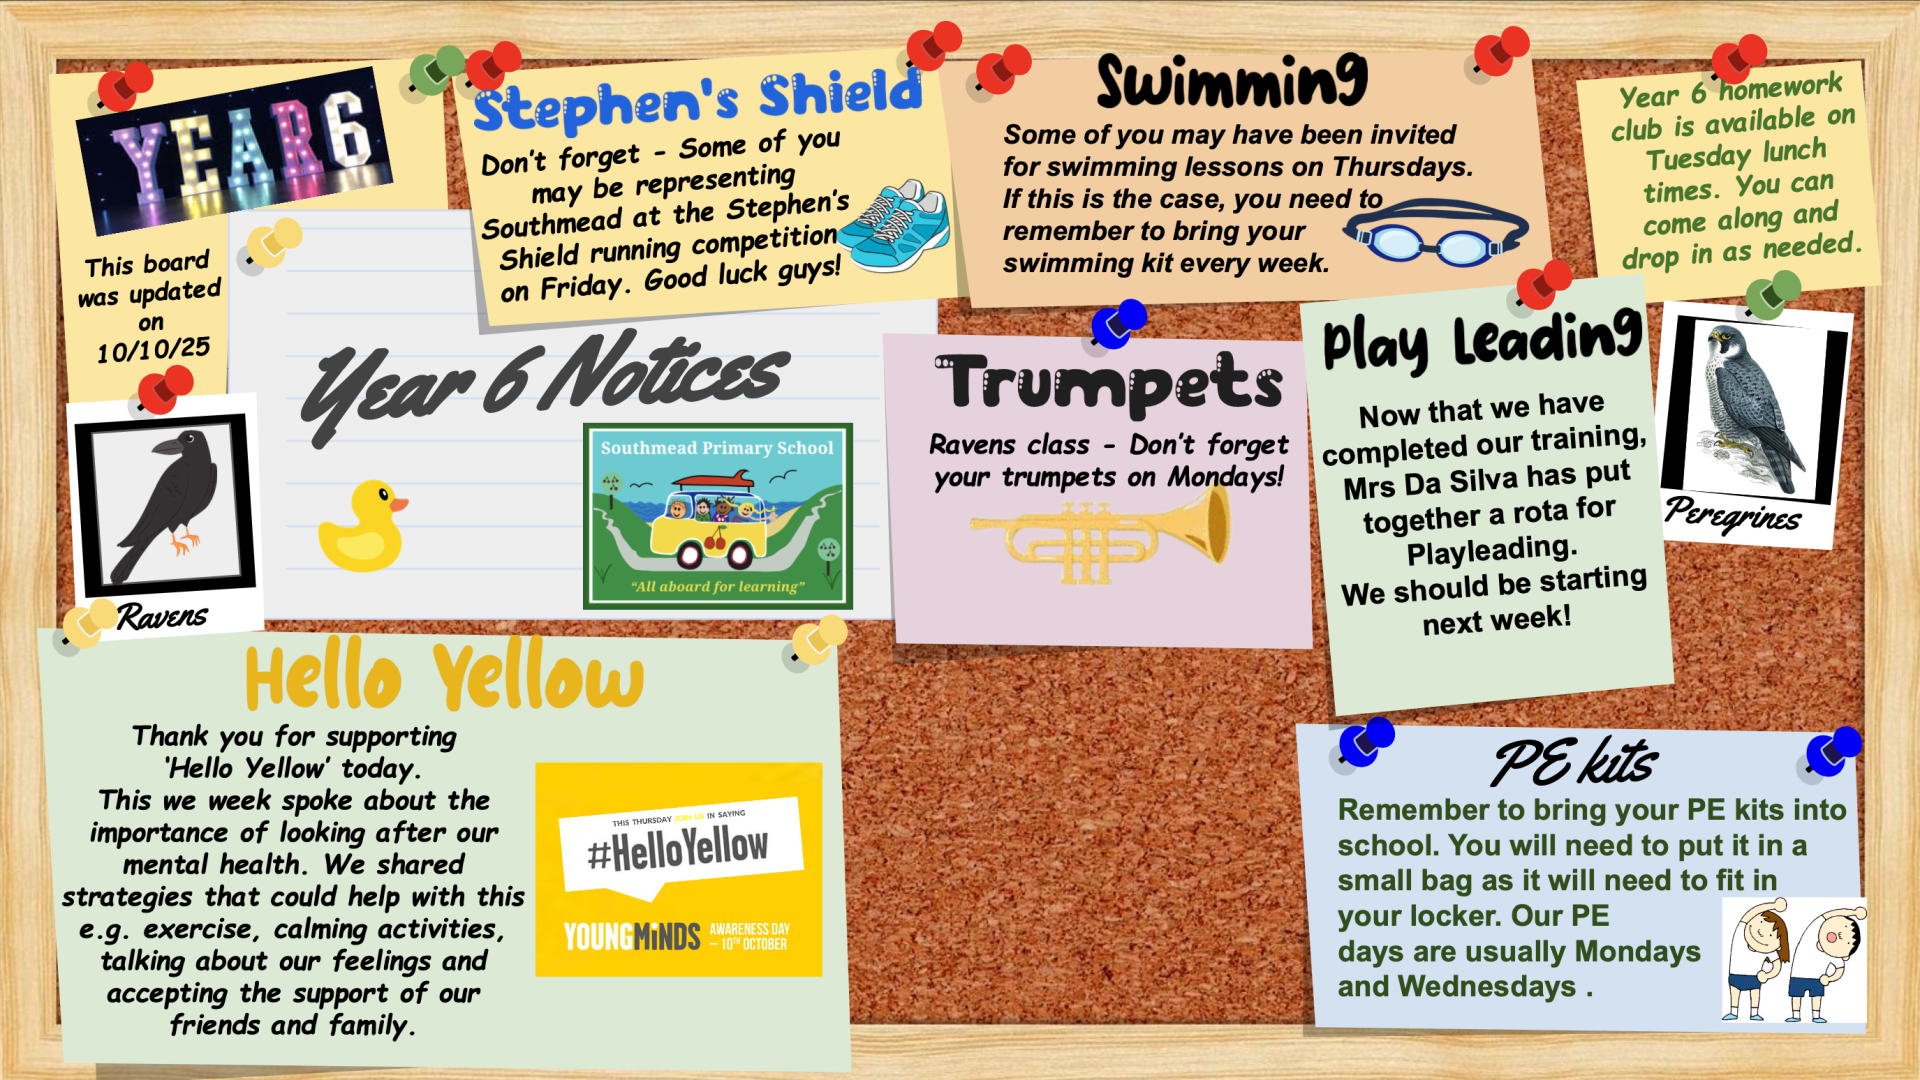 YEAR 6
This board
was updated
on
10/10/25
Stephen's Shield
Don't forget - Some of you
may be representing
Southmead at the Stephen's
Shield running competition
on Friday. Good luck guys!
Swimming
Some of you may have been invited
for swimming lessons on Thursdays.
If this is the case, you need to
remember to bring your
swimming kit every week.
Year 6 homework
club is available on
Tuesday lunch
times. You can
come along and
drop in as needed.
Year 6 Notices
Southmead Primary School
"All aboard for learning"
Trumpets
Ravens class - Don't forget
your trumpets on Mondays!
Play Leading
Now that we have
completed our training,
Mrs Da Silva has put
together a rota for
Playleading.
We should be starting
next week!
Peregrines
Ravens
Hello Yellow
Thank you for supporting
'Hello Yellow' today.
This we week spoke about the
importance of looking after our
mental health. We shared
strategies that could help with this
e.g. exercise, calming activities,
talking about our feelings and
accepting the support of our
friends and family.
THIS THURSDAY JOIN US IN SAYING
#HelloYellow
YOUNGMiNDS
AWARENESS DAY
– 10TH OCTOBER
PE kits
Remember to bring your PE kits into
school. You will need to put it in a
small bag as it will need to fit in
your locker. Our PE
days are usually Mondays
and Wednesdays .